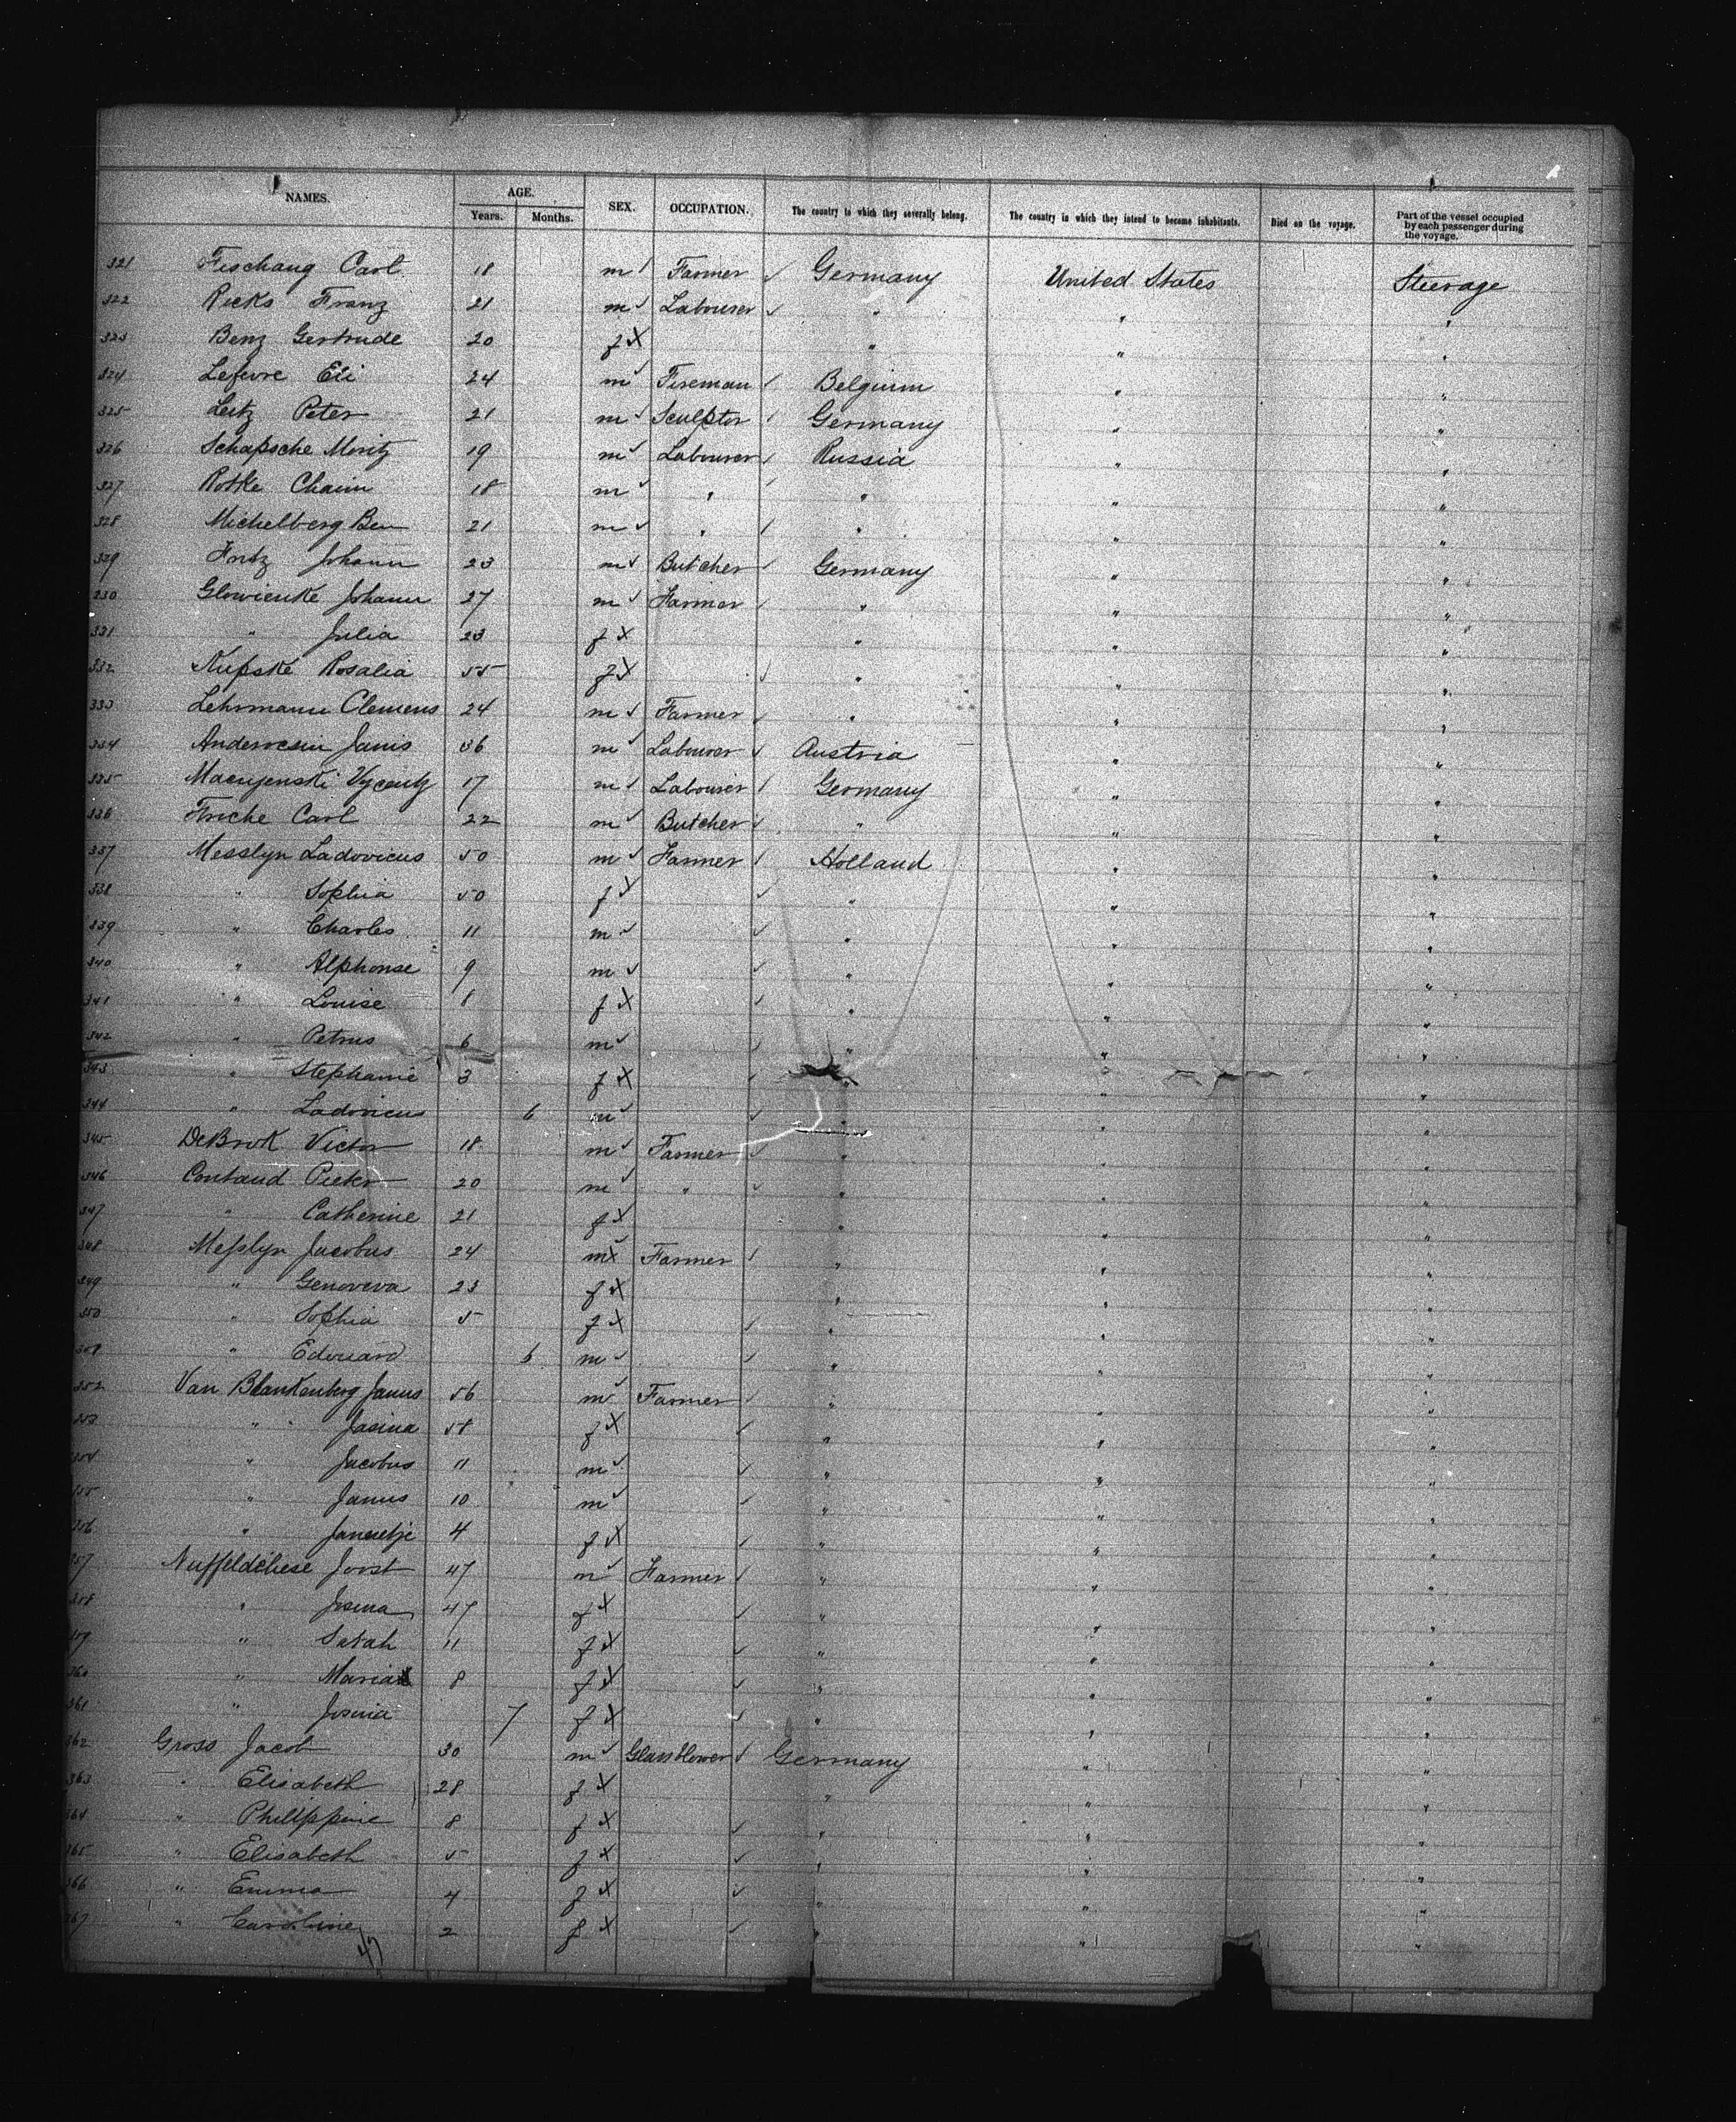 NAMES. AGE. Years. Months. SEX. OCCUPATION. The country to which they severally belong. The country in which they intend to become inhabitants. Died on the voyage. Part of the vessel occupied by each passenger during the voyage.
321 Fischang Carl 18 m Farmer Germany United States Steerage
322 Ricks Franz 21 m Labourer " " "
323 Benz Gertrude 20 f " " "
324 Lefevre Eli 24 m Fireman Belgium " "
325 Leitz Peter 21 m Sculptor Germany " "
326 Schapsche Moritz 19 m Labourer Russia " "
327 Rotke Chaim 18 m " " " "
328 Michelberg Ben 21 m " " " "
329 Fritz Johann 23 m Butcher Germany " "
330 Glowienke Johann 27 m Farmer " " "
331 " Julia 23 f " " "
332 Kupske Rosalia 55 f " " "
333 Lehrmann Clemens 24 m Farmer " " "
334 Janis 36 m Labourer Austria " "
335 17 m Labourer Germany " "
336 Friche Carl 22 m Butcher " " "
337 Messlyn Ladovicus 50 m Farmer Holland " "
338 " Sophia 50 f " " "
339 " Charles 11 m " " "
340 " Alphonse 9 m " " "
341 " Louise 8 f " " "
342 " Petrus 6 m " " "
343 " Stephanie 3 f " " "
344 " Ladovicus 6 m " " "
345 DeBrok Victor 18 m Farmer " " "
346 Contaud Pieter 20 m " " " "
347 " Catherine 21 f " " "
348 Messlyn Jacobus 24 m Farmer " " "
349 " Genoveva 23 f " " "
350 " Sophia 5 f " " "
351 " Edouard 6 m " " "
352 Van Blankenberg Janus 56 m Farmer " " "
353 " Jasina 58 f " " "
354 " Jacobus 11 m " " "
355 " Janus 10 m " " "
356 " 4 f " " "
357 Joost 47 m Farmer " " "
358 " Josina 47 f " " "
359 " Sarah 11 f " " "
360 " Maria 8 f " " "
361 " Josina 7 f " " "
362 Gross Jacob 30 m Glassblower Germany " "
363 " Elisabeth 28 f " " "
364 " Philippine 8 f " " "
365 " Elisabeth 5 f " " "
366 " Emma 4 f " " "
367 " Caroline 2 f " " "
47